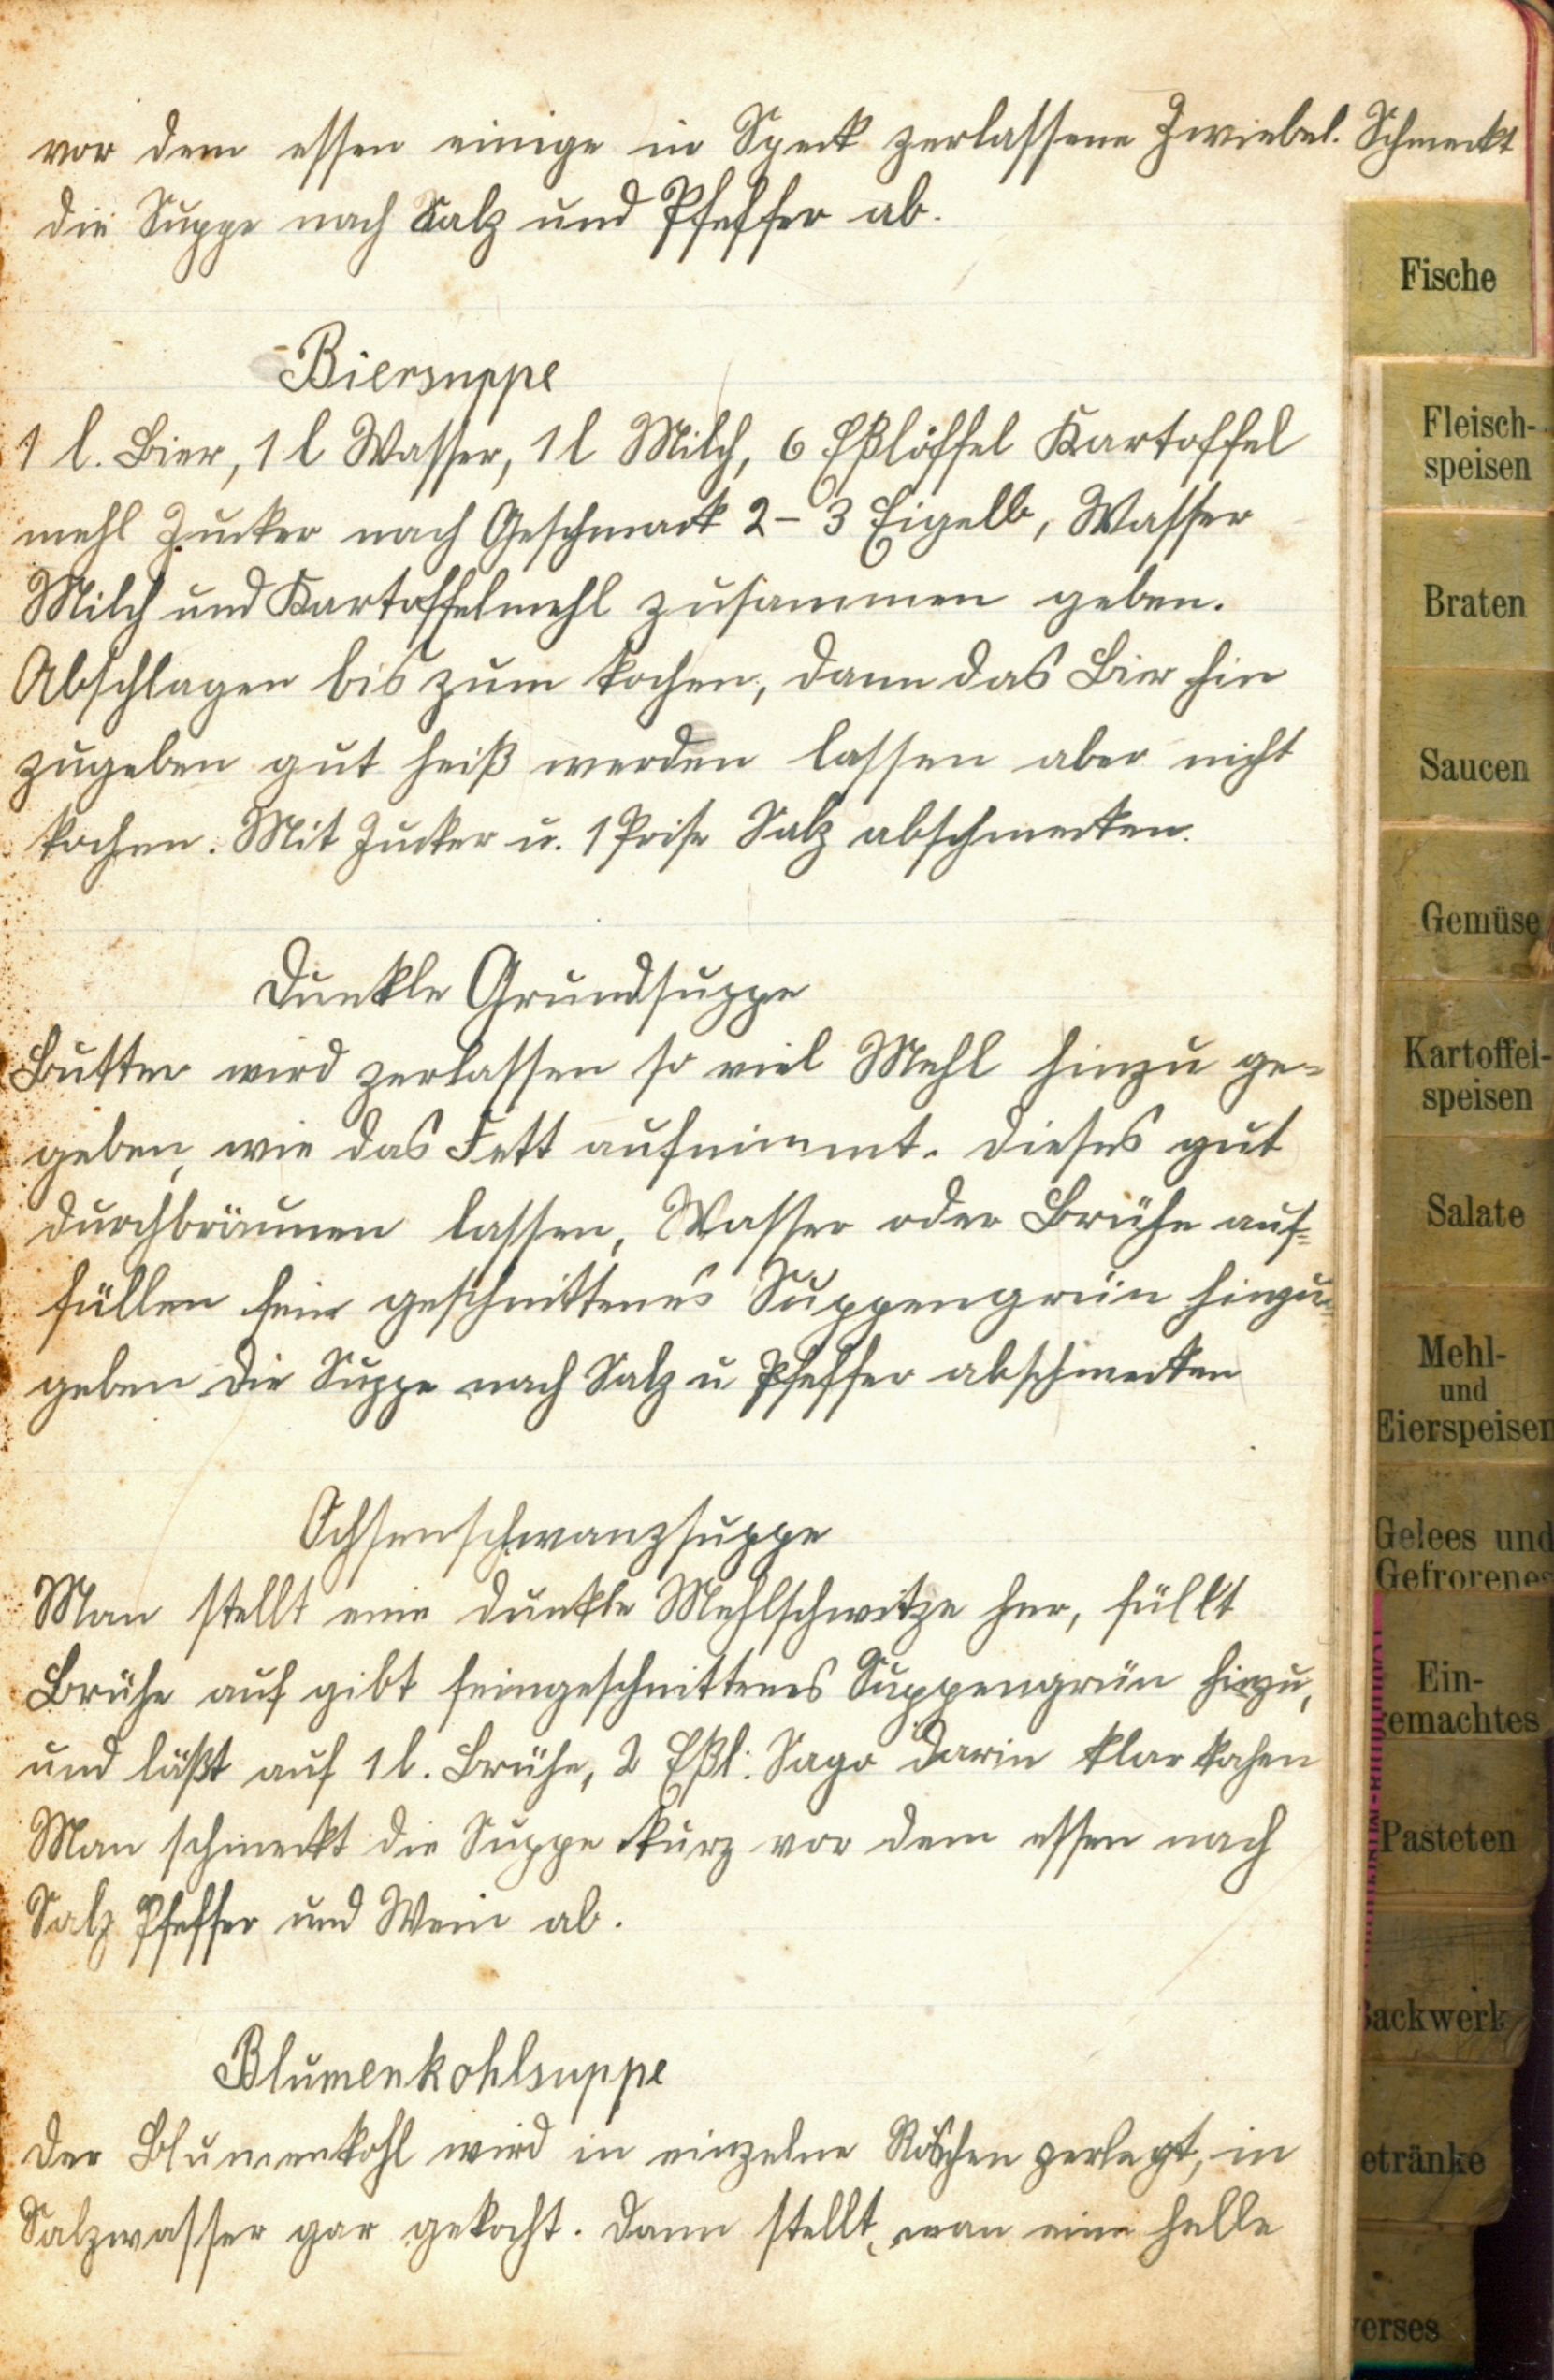 vor dem essen einige in Speck zerlassene Zwiebel. Schmeckt
die Suppe nach Salz und Pfeffer ab.
Biersuppe
1 l. Bier, 1 l Wasser, 1 l Milch, 6 Eßlöffel Kartoffel
mehl Zucker nach Geschmack 2-3 Eigelb, Wasser
Milch und Kartoffelmehl zusammen geben.
Abschlagen bis zum kochen, dann das Bier hin
zugeben gut heiß werden lassen aber nicht
kochen. Mit Zucker u. 1 Prise Salz abschmecken.
Dunkle Grundsuppe
Butter wird zerlassen so viel Mehl hinzu ge=
geben, wie das Fett aufnimmt. Dieses gut
durchbräunen lassen, Wasser oder Brühe auf=
füllen fein geschnittenes Suppengrün hinzu=
geben die Suppe nach Salz u Pfeffer abschmecken
Ochsenschwanzsuppe
Man stellt eine dunkle Mehlschwitze her, füllt
Brühe auf gibt feingeschnittenes Suppengrün hinzu,
und läßt auf 1 l. Brühe, 2 Eßl. Sago darin klar kochen
Man schmeckt die Suppe kurz vor dem essen nach
Salz Pfeffer und Wein ab.
Blumenkohlsuppe
Der Blumenkohl wird in einzelne Röschen zerlegt, in
Salzwasser gar gekocht. Dann stellt, man eine helle
Fische
Fleisch-
speisen
Braten
Saucen
Gemüse
Kartoffel-
speisen
Salate
Mehl-
und
Eierspeisen
Gelees und
Gefrorenes
Ein-
emachtes
Pasteten
ackwerk
etränke
erses